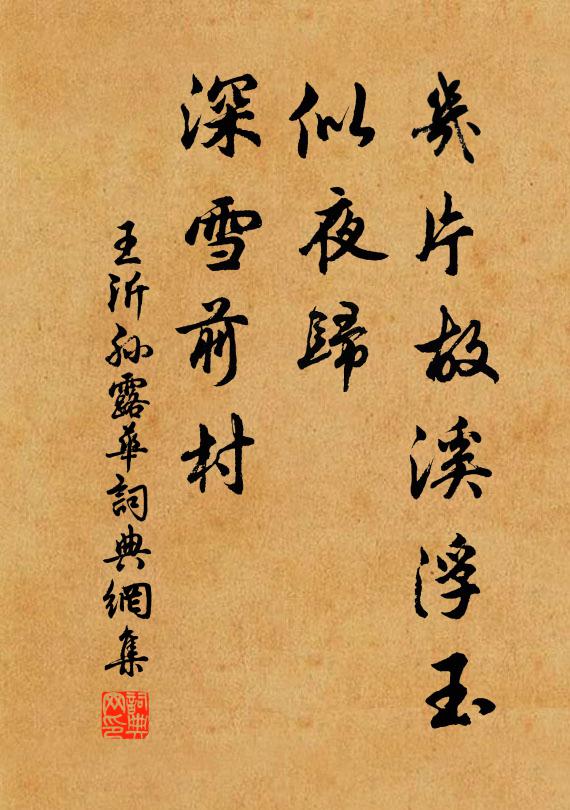 幾片故溪浮玉
似夜歸
深雪前村
王沂孫露華詞典網集
詞典網印